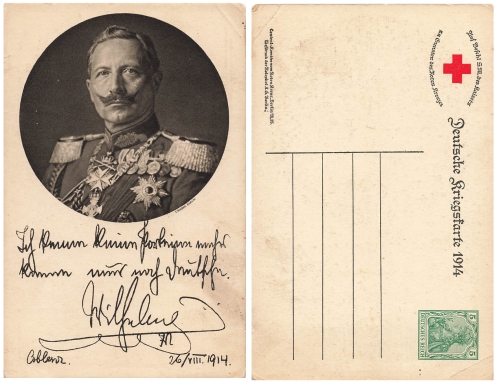 Ich kenne keine Parteien mehr
kenne nur noch Deutsche.
Wilhelm
I.R.
Coblenz 26/VIII. 1914.
Auf Befehl S.M. des Kaisers
Zu Gunsten des Roten Kreuzes
Deutsche Kriegskarte 1914
5 5
DEUTSCHES REICH